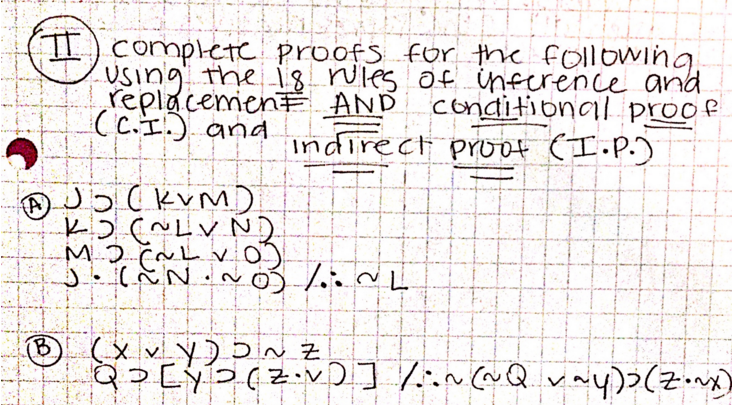 II) complete proofs for the following
using the 18 rules of inference and
replacement AND conditional proof
(C.I.) and
indirect proof (I.P.)
A) J ⊃ (K v M)
K ⊃ (~L v N)
M ⊃ (~L v O)
J · (~N · ~O) /∴ ~L
B) (X v Y) ⊃ ~Z
Q ⊃ [Y ⊃ (Z · v)] /∴ ~(~Q v ~y) ⊃ (Z · ~x)